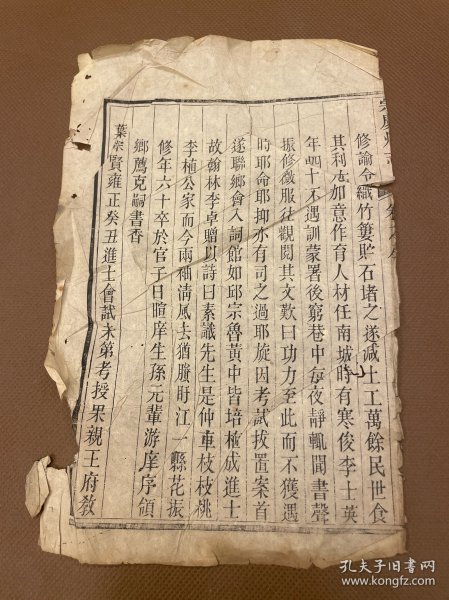 修諭令織竹簍貯石堵之遂减土工萬餘民世食
其利尤加意作育人材任南城時有寒俊李士英
年四十不遇訓蒙署後窮巷中每夜靜輒聞書聲
振修微服往觀閱其文歎曰功力至此而不獲遇
時耶命耶抑亦有司之過耶旋因考試拔置案首
遂聯鄉會入詞館如邱宗魯黃中皆培植成進士
故翰林李卓贈以詩曰素識先生是仲車枝枝桃
李植公家而今兩袖清風去猶賸盱江一縣花振
修年六十卒於官子日暄庠生孫元輩游庠序領
鄉薦克嗣書香
葉宗賢雍正癸丑進士會試未第考授果親王府教
孔夫子旧书网
www.kongfz.com